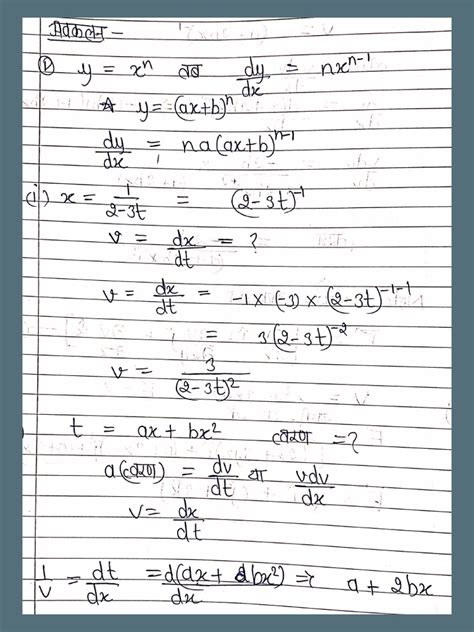 अवकलन –
① y = xⁿ तब dy/dx = nxⁿ⁻¹
* y = (ax+b)ⁿ
dy/dx = na(ax+b)ⁿ⁻¹
(i) x = 1/(2-3t) = (2-3t)⁻¹
v = dx/dt = ?
v = dx/dt = -1 × (-3) × (2-3t)⁻¹⁻¹
= 3(2-3t)⁻²
v = 3/(2-3t)²
t = ax + bx² त्वरण = ?
a(त्वरण) = dv/dt या vdv/dx
v = dx/dt
1/v = dt/dx = d(ax + bx²)/dx ⇒ a + 2bx